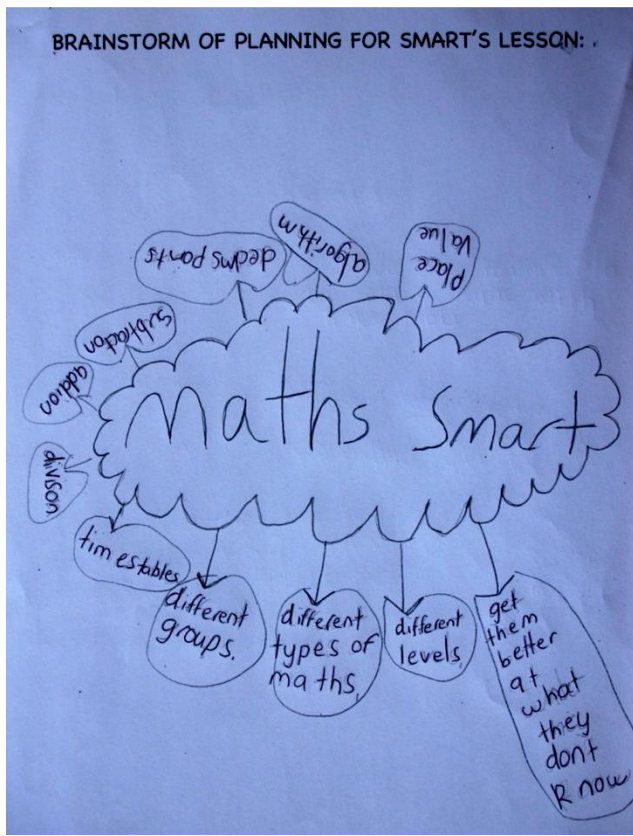 BRAINSTORM OF PLANNING FOR SMART'S LESSON:
Maths Smart
place
value
algorithm
decims pants
subtracton
addion
divison
timestables
different
groups.
different
types of
maths,
different
levels
get
them
better
at
what
they
dont
know